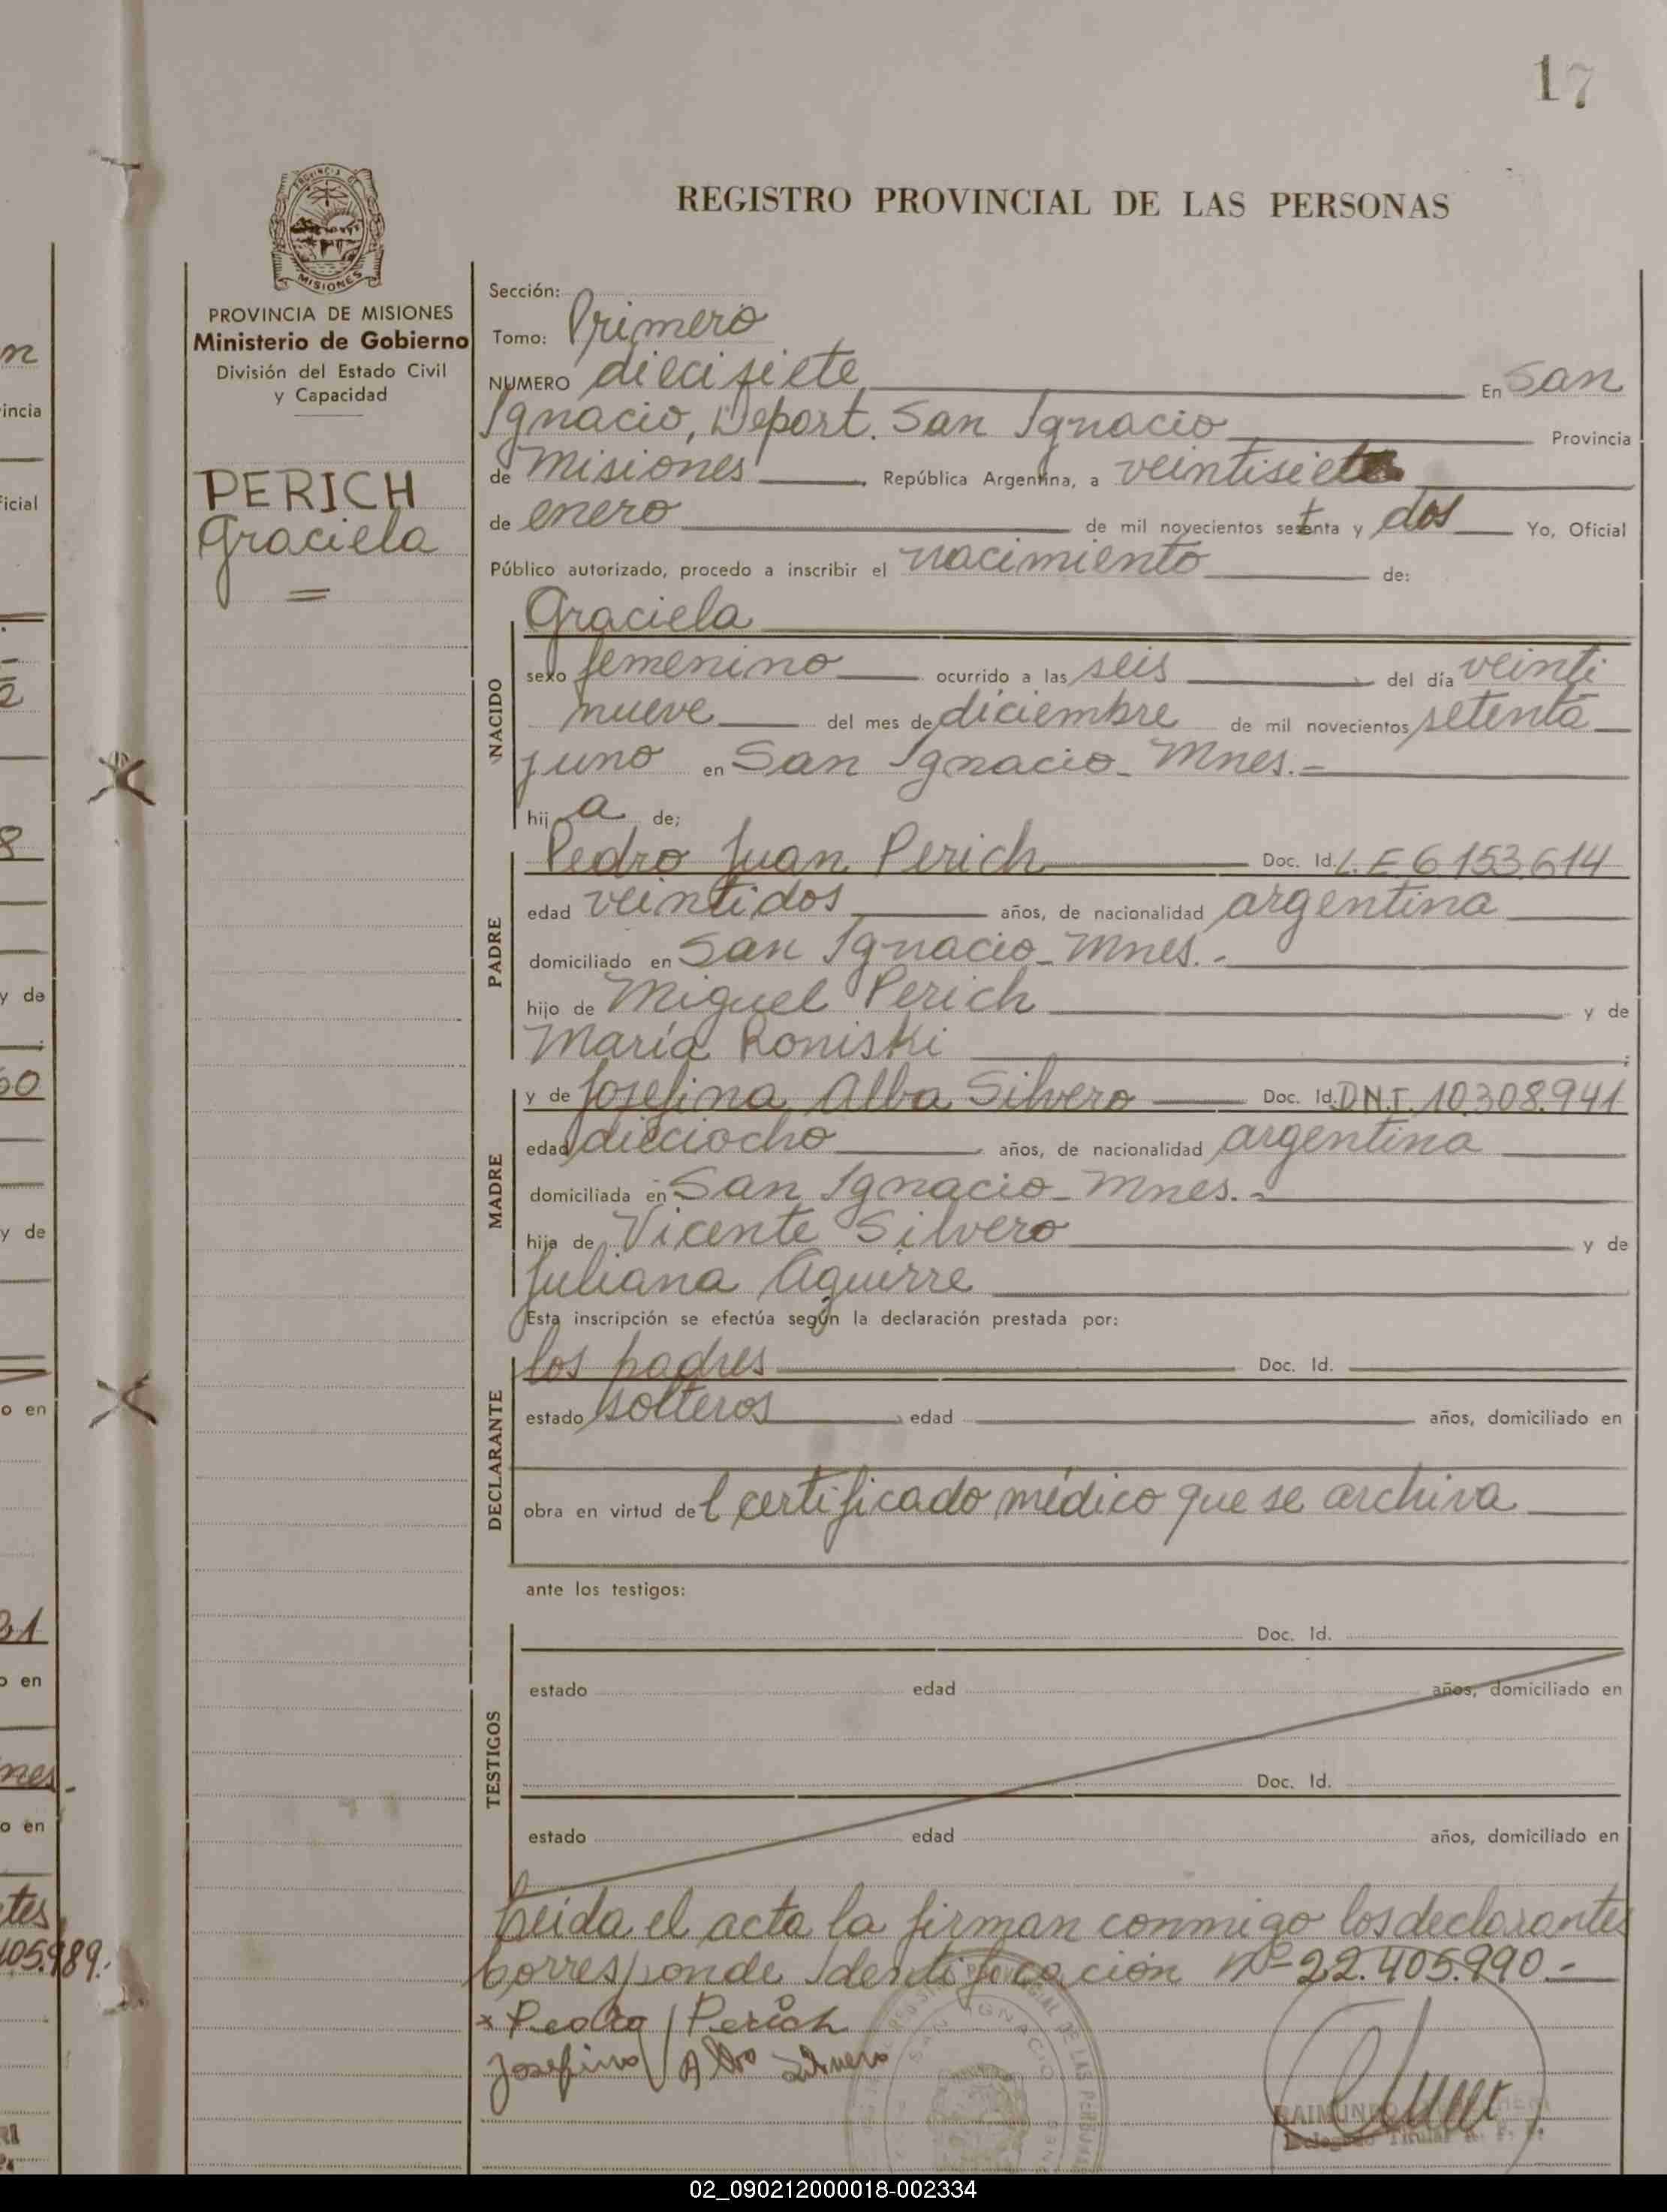 17
PROVINCIA DE
MISIONES
REGISTRO PROVINCIAL DE LAS PERSONAS
PROVINCIA DE MISIONES
Ministerio de Gobierno
División del Estado Civil
y Capacidad
PERICH
Graciela
Sección:
Tomo: Primero
NUMERO diecisiete En San
Ignacio, Depart. San Ignacio Provincia
de Misiones, República Argentina, a veintisiete
de enero de mil novecientos setenta y dos Yo, Oficial
Público autorizado, procedo a inscribir el nacimiento de:
NACIDO
Graciela
sexo femenino ocurrido a las seis del día veinti
nueve del mes de diciembre de mil novecientos setenta
y uno en San Ignacio - Mnes. -
hij a de;
PADRE
Pedro Juan Perich Doc. Id. L.E 6153.614
edad veintidos años, de nacionalidad argentina
domiciliado en San Ignacio - Mnes. -
hijo de Miguel Perich y de
María Roniski ;
MADRE
y de Josefina Alba Silvero Doc. Id. D.N.I. 10.308.941
edad dieciocho años, de nacionalidad argentina
domiciliada en San Ignacio - Mnes. -
hija de Vicente Silvero y de
Juliana Aguirre
Esta inscripción se efectúa según la declaración prestada por:
DECLARANTE
los padres Doc. Id.
estado solteros edad años, domiciliado en
obra en virtud del certificado médico que se archiva
ante los testigos:
TESTIGOS
Doc. Id.
estado edad años, domiciliado en
Doc. Id.
estado edad años, domiciliado en
Leida el acta la firman conmigo los declarantes
Corresponde Identificación nº 22.405.990.-
x Pedro J Perich
Josefina Alba Silvero
SAN IGNACIO
RAIMUNDO
Delegado Titular R. P. P.
n
incia
icial
8
y de
60
y de
o en
31
o en
nes.
o en
tes
405.989.
02_090212000018-002334